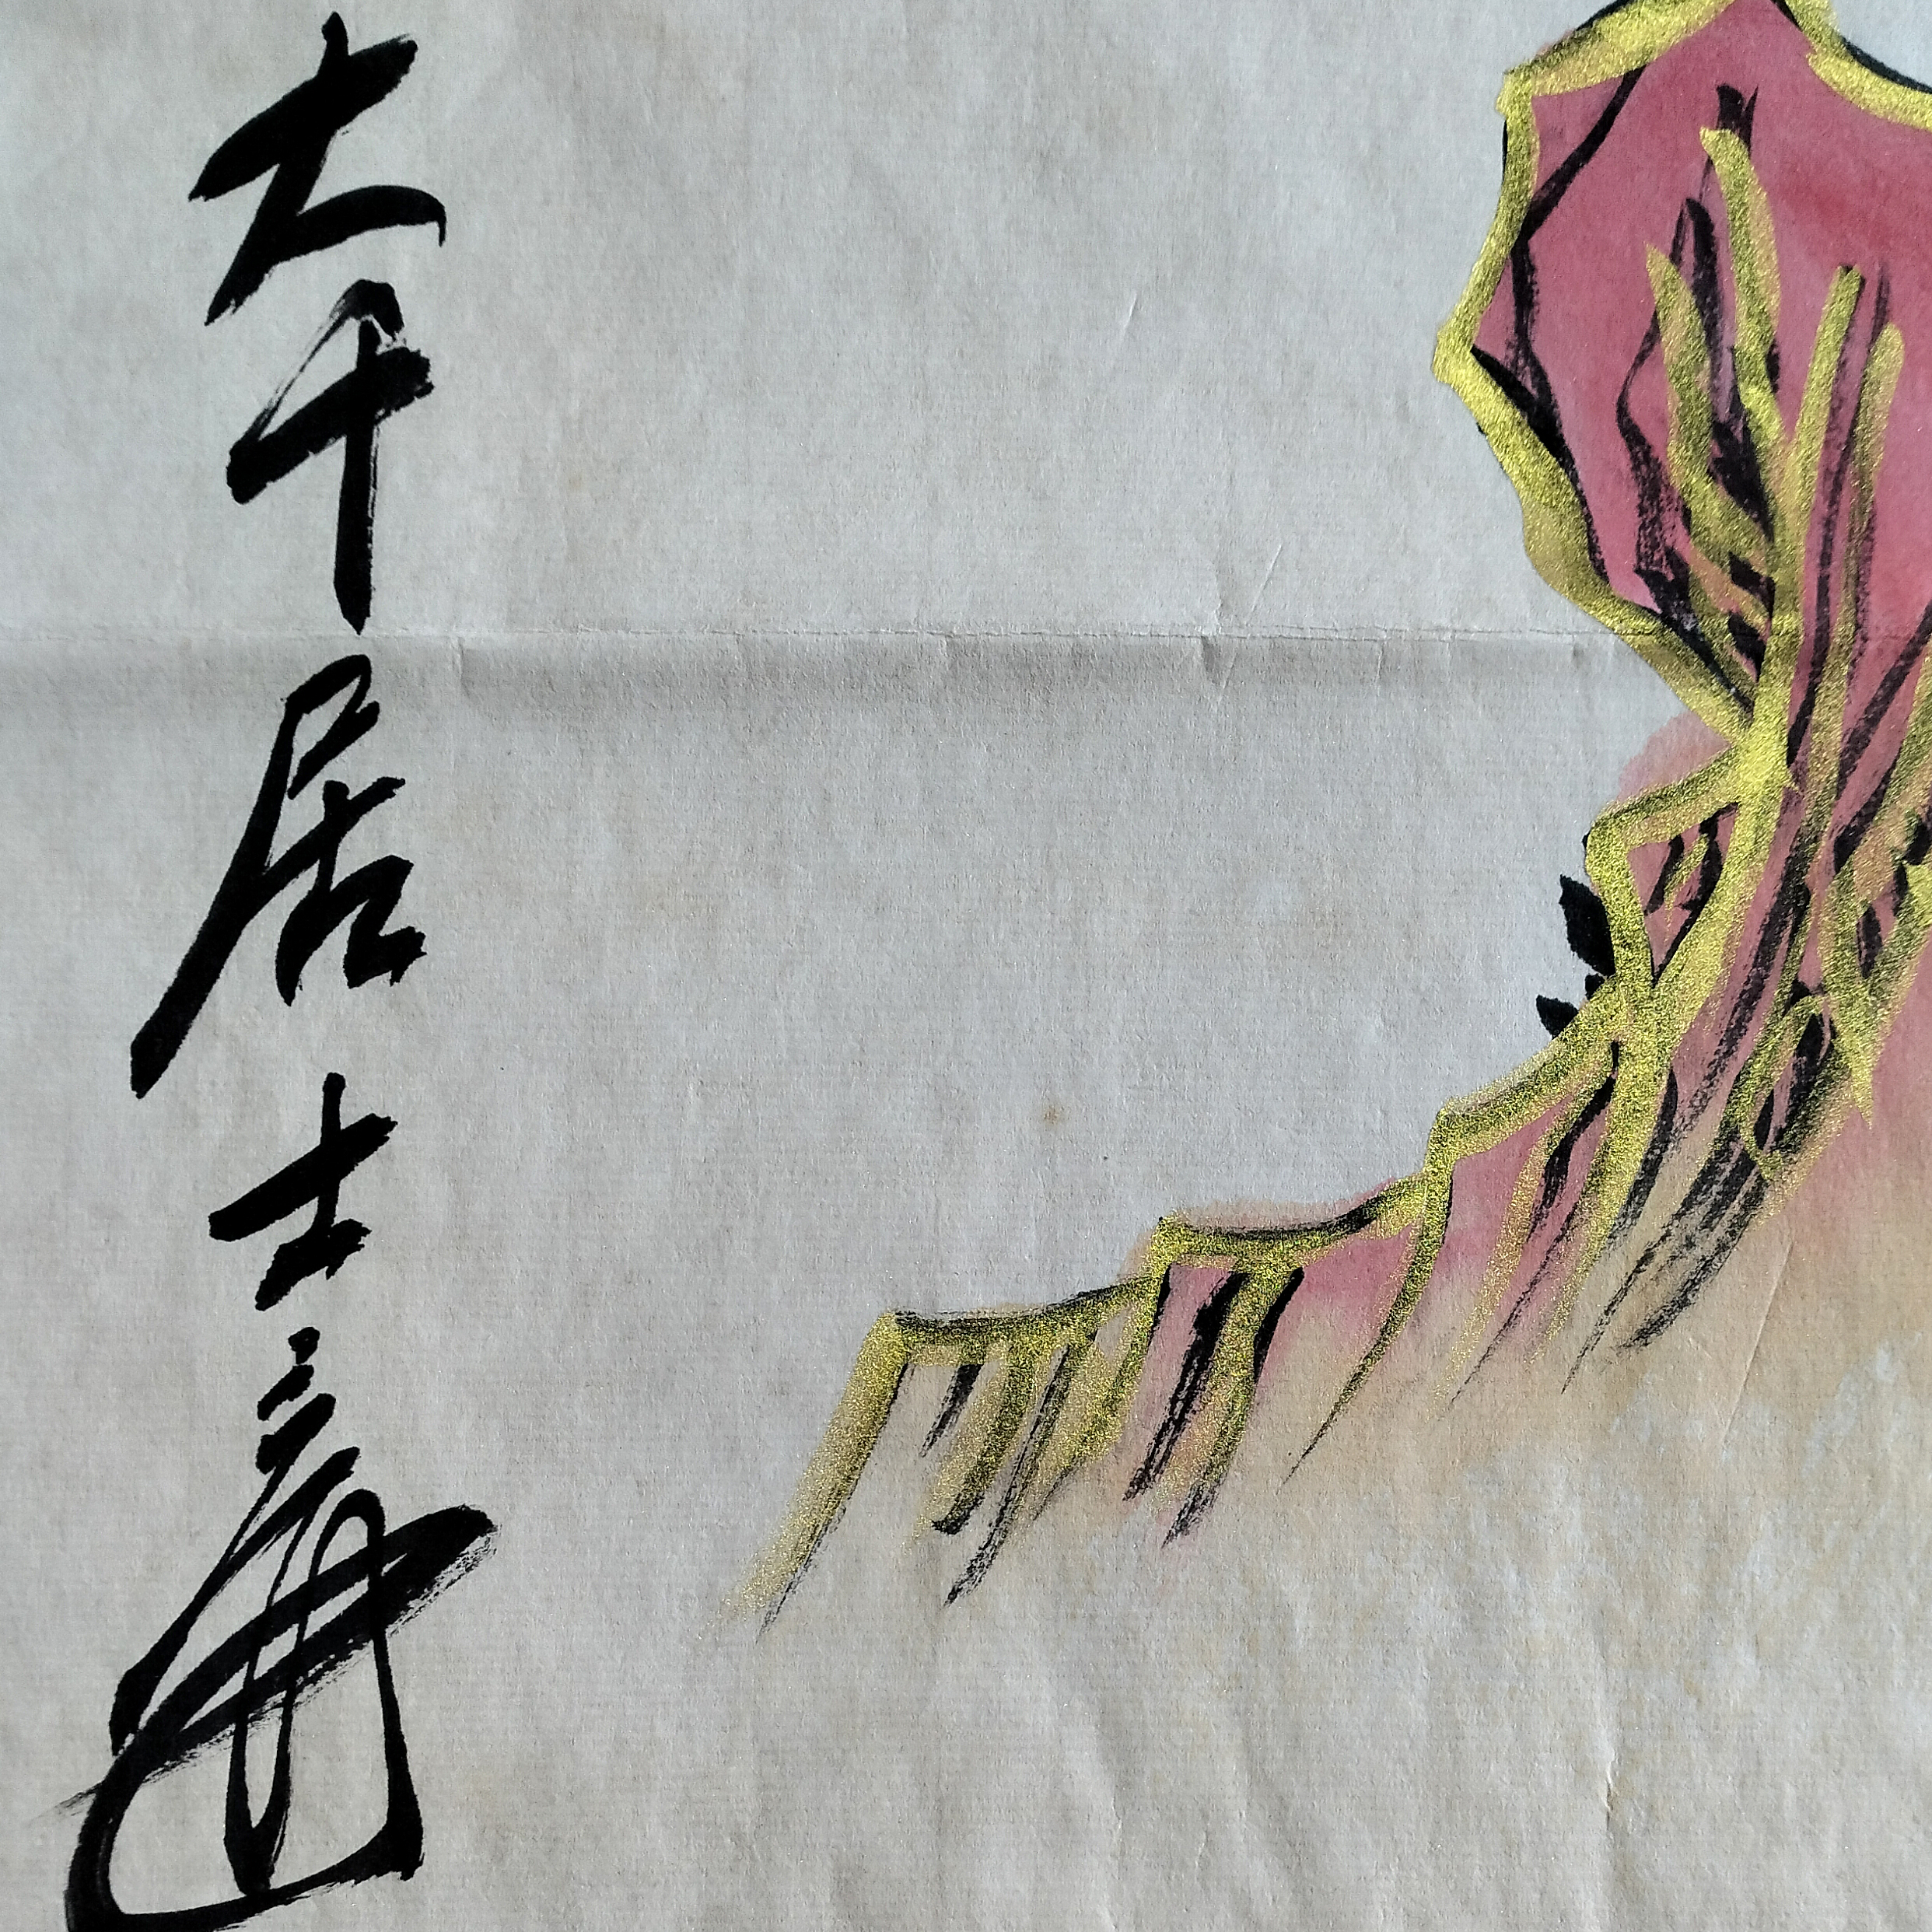 大千居士爰